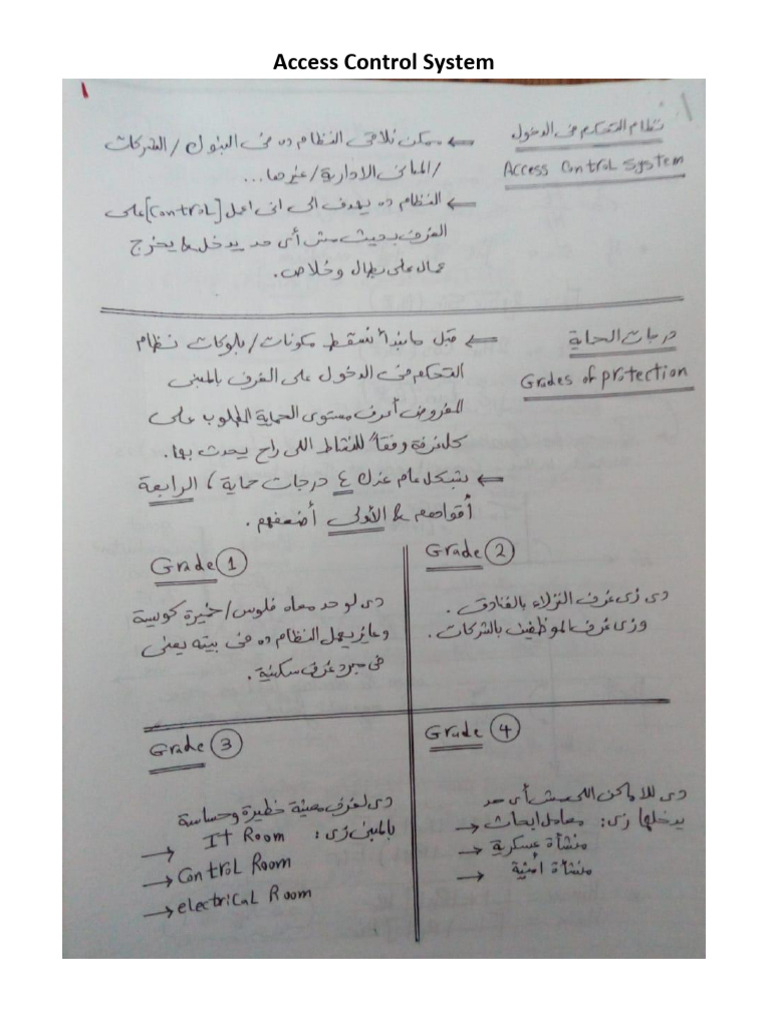 Access Control System
١
نظام التحكم فى الدخول
Access Control System
← ممكن نلاقى النظام ده فى البنوك / الشركات
/ المبانى الادارية / غيرها...
← النظام ده يهدف الى انى اعمل [Control] على
الغرف بحيث مش أى حد يدخل & يخرج
عمال على بطال وخلاص.
درجات الحماية
Grades of protection
← قبل ما نبدأ نسقط مكونات / بلوكات نظام
التحكم فى الدخول على الغرف بالمبنى
المفروض أعرف مستوى الحماية المطلوب على
كل غرفة وفقاً للنشاط اللى راح يحدث بها.
← بشكل عام عندك ٤ درجات حماية ، الرابعة
أقواهم & الأولى أضعفهم.
Grade 1
دى لو حد معاه فلوس / خميرة كويسة
وعايز يعمل النظام ده فى بيته يعنى
فى مجرد غرف سكنية.
Grade 2
دى زى غرف النزلاء بالفنادق.
وزى غرف الموظفين بالشركات.
Grade 3
دى لغرف معينة خطيرة وحساسة
بالمبنى زى: It Room →
→ Control Room
→ electrical Room
Grade 4
دى للاماكن اللى مش أى حد
يدخلها زى: معامل ابحاث →
منشأة عسكرية →
منشأة أمنية →